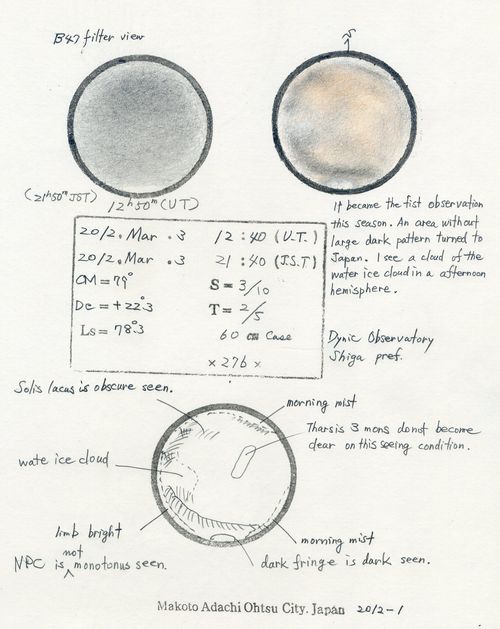 B47 filter view
S
(21h50m JST) 12h50m (UT)
It became the fist observation
this season. An area without
large dark pattern turned to
Japan. I see a cloud of the
water ice cloud in a afternoon
hemisphere.
2012. Mar. 3 12:40 (U.T.)
2012. Mar. 3 21:40 (J.S.T)
CM=79° S=3/10
De=+22.°3 T=2/5
Ls=78.°3 60 cm Case
×276×
Dynic Observatory
Shiga pref.
Solis lacus is obscure seen.
morning mist
Tharsis 3 mons donot become
clear on this seeing condition.
wate ice cloud
limb bright
not
NPC is ^ monotonus seen.
morning mist
dark fringe is dark seen.
Makoto Adachi Ohtsu City. Japan 2012-1